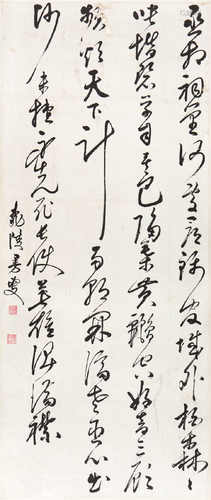 丞相祠堂何處尋錦官城外柏森〻
映階碧草自春色隔葉黃鸝空好音三顧
頻煩天下計兩朝開濟老臣心出
師未捷身先死長使英雄淚滿襟
叟